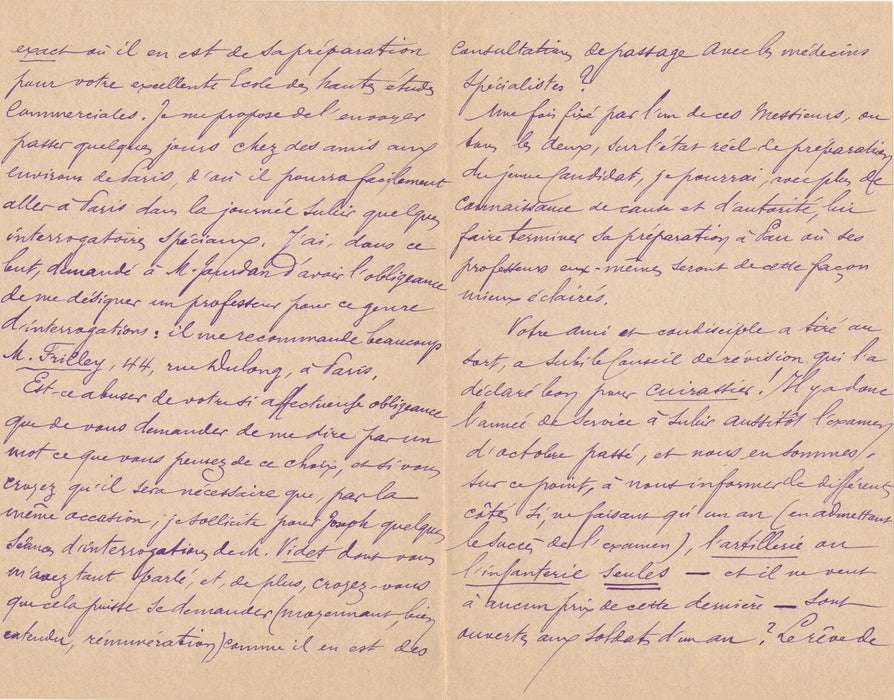 exact où il en est de sa préparation
pour votre excellente Ecole des hautes études
Commerciales. Je me propose de l'envoyer
passer quelques jours chez des amis aux
environs de Paris, d'où il pourra facilement
aller à Paris dans la journée subir quelques
interrogatoires spéciaux. J'ai, dans ce
but, demandé à M. Jourdan d'avoir l'obligeance
de me désigner un professeur pour ce genre
d'interrogations : il me recommande beaucoup
M. Frilley, 44, rue Dulong, à Paris.
Est-ce abuser de votre si affectueuse obligeance
que de vous demander de me dire par un
mot ce que vous pensez de ce choix, et si vous
croyez qu'il sera nécessaire que, par la
même occasion, je sollicite pour Joseph quelques
séances d'interrogations de M. Videt dont vous
m'avez tant parlé, et, de plus, croyez-vous
que cela puisse se demander (moyennant, bien
entendu, rémunération) comme il en est des
consultations de passage avec les médecins
spécialistes ?
Une fois fixé par l'un de ces Messieurs, ou
tous les deux, sur l'état réel de préparation
du jeune Candidat, je pourrai, avec plus de
connaissance de cause et d'autorité, lui
faire terminer sa préparation à Pau où ses
professeurs eux-mêmes seront de cette façon
mieux éclairés.
Votre ami et condisciple a tiré au
sort, a subi le Conseil de révision qui l'a
déclaré bon pour cuirassier ! Il y a donc
l'année de service à subir aussitôt l'examen
d'octobre passé, et nous en sommes,
sur ce point, à nous informer de différents
côtés si, ne faisant qu'un an (en admettant
le succès de l'examen), l'artillerie ou
l'infanterie seules — et il ne veut
à aucun prix de cette dernière — sont
ouvertes aux soldats d'un an ? Le rêve de